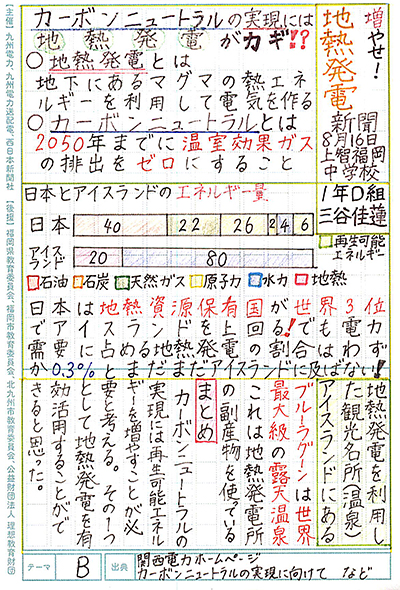 増やせ!
地熱発電
新聞
8月16日
上智福岡
中学校
1年D組
三谷佳蓮
カーボンニュートラルの実現には
地熱発電がカギ!?
○地熱発電とは
地下にあるマグマの熱エネ
ルギーを利用して電気を作る
○カーボンニュートラルとは
2050年までに温室効果ガス
の排出をゼロにすること
日本とアイスランドのエネルギー量
日本 40 22 26 2 4 6
アイスランド 20 80
再生可能エネルギー
石油 石炭 天然ガス 原子力 水力 地熱
日本は地熱資源保有国が世界3位
力ず!
アイスランドに及ばない!
0.3%
地熱発電を利用し
た観光名所(温泉)
アイスランドにある
ブルーラグーンは世界
最大級の露天温泉
これは地熱発電所
の副産物を使っている
まとめ
カーボンニュートラルの
実現には再生可能エネル
ギーを増やすことが必
要と考える。その一つ
として地熱発電を有
効活用することがで
きると思った。
テーマ B 出典 関西電力ホームページ
カーボンニュートラルの実現に向けて など
【主催】九州電力、九州電力送配電、西日本新聞社 【後援】福岡県教育委員会、福岡市教育委員会、北九州市教育委員会、公益財団法人 理想教育財団